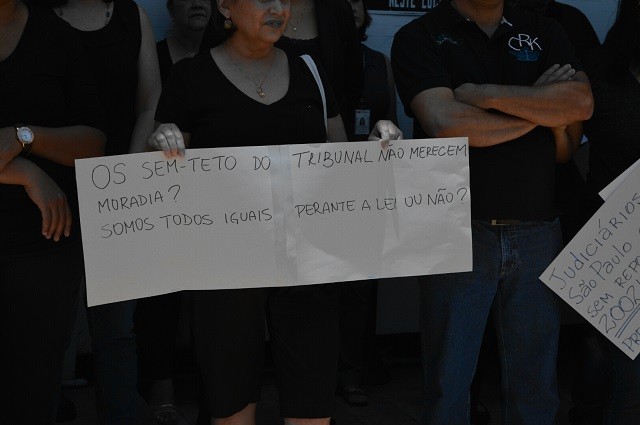 OS SEM-TETO DO TRIBUNAL NÃO MERECEM
MORADIA?
SOMOS TODOS IGUAIS PERANTE A LEI OU NÃO?
CRK
JUDICIÁRIOS
SÃO PAULO
SEM REPO
2002